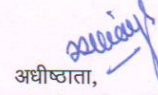 अधीष्ठाता,